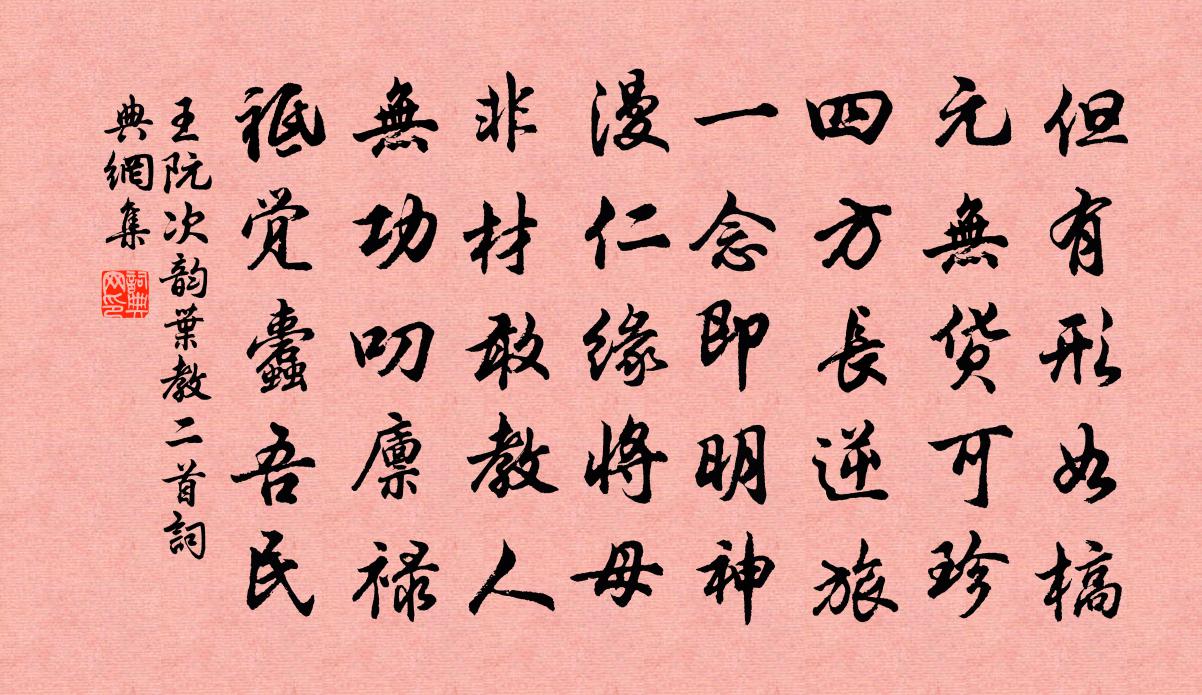 但有形如槁
元無货可珍
四方長逆旅
一念即明神
漫仁缘將母
非材敢教人
無功叨廪禄
祗觉蠹吾民
王阮次韵葉教二首詞
典網集
詞典
网印